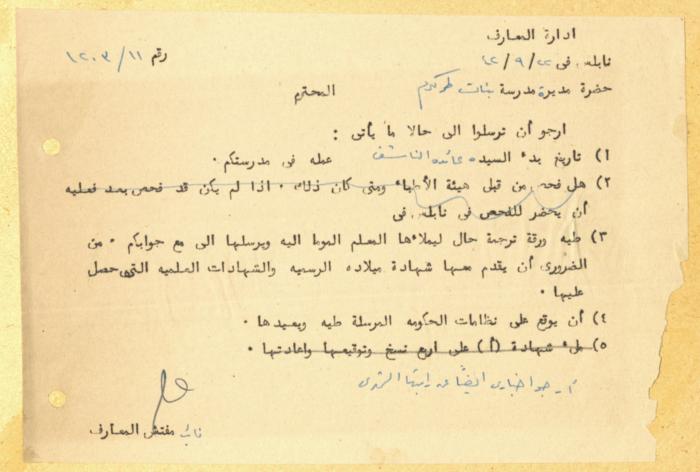 ادارة المعارف
رقم ١٢٠٣/١١
نابلس فى
حضرة مديرة مدرسة بنات طولكرم المحترم
ارجو أن ترسلوا الى حالا ما يأتى :
١) تاريخ بدء السيده عائده الناشف عمله فى مدرستكم ٠
٢) هل فحص من قبل هيئة الأطباء ومتى كان ذلك ٠ اذا لم يكن قد فحص بعد فعليه
أن يحضر للفحص فى نابلس فى
٣) طيه ورقة ترجمة حال ليملاءها المعلم الموما اليه ويرسلها الى مع جوابكم ٠ من
الضرورى أن يقدم معها شهادة ميلاده الرسميه والشهادات العلميه التى حصل
عليها ٠
٤) أن يوقع على نظامات الحكومه المرسلة طيه ويعيدها ٠
٥) ملء شهادة (أ) على اربع نسخ وتوقيعها واعادتها ٠
ارجو اخبارى ايضا عن راتبها الشهرى
نائب مفتش المعارف